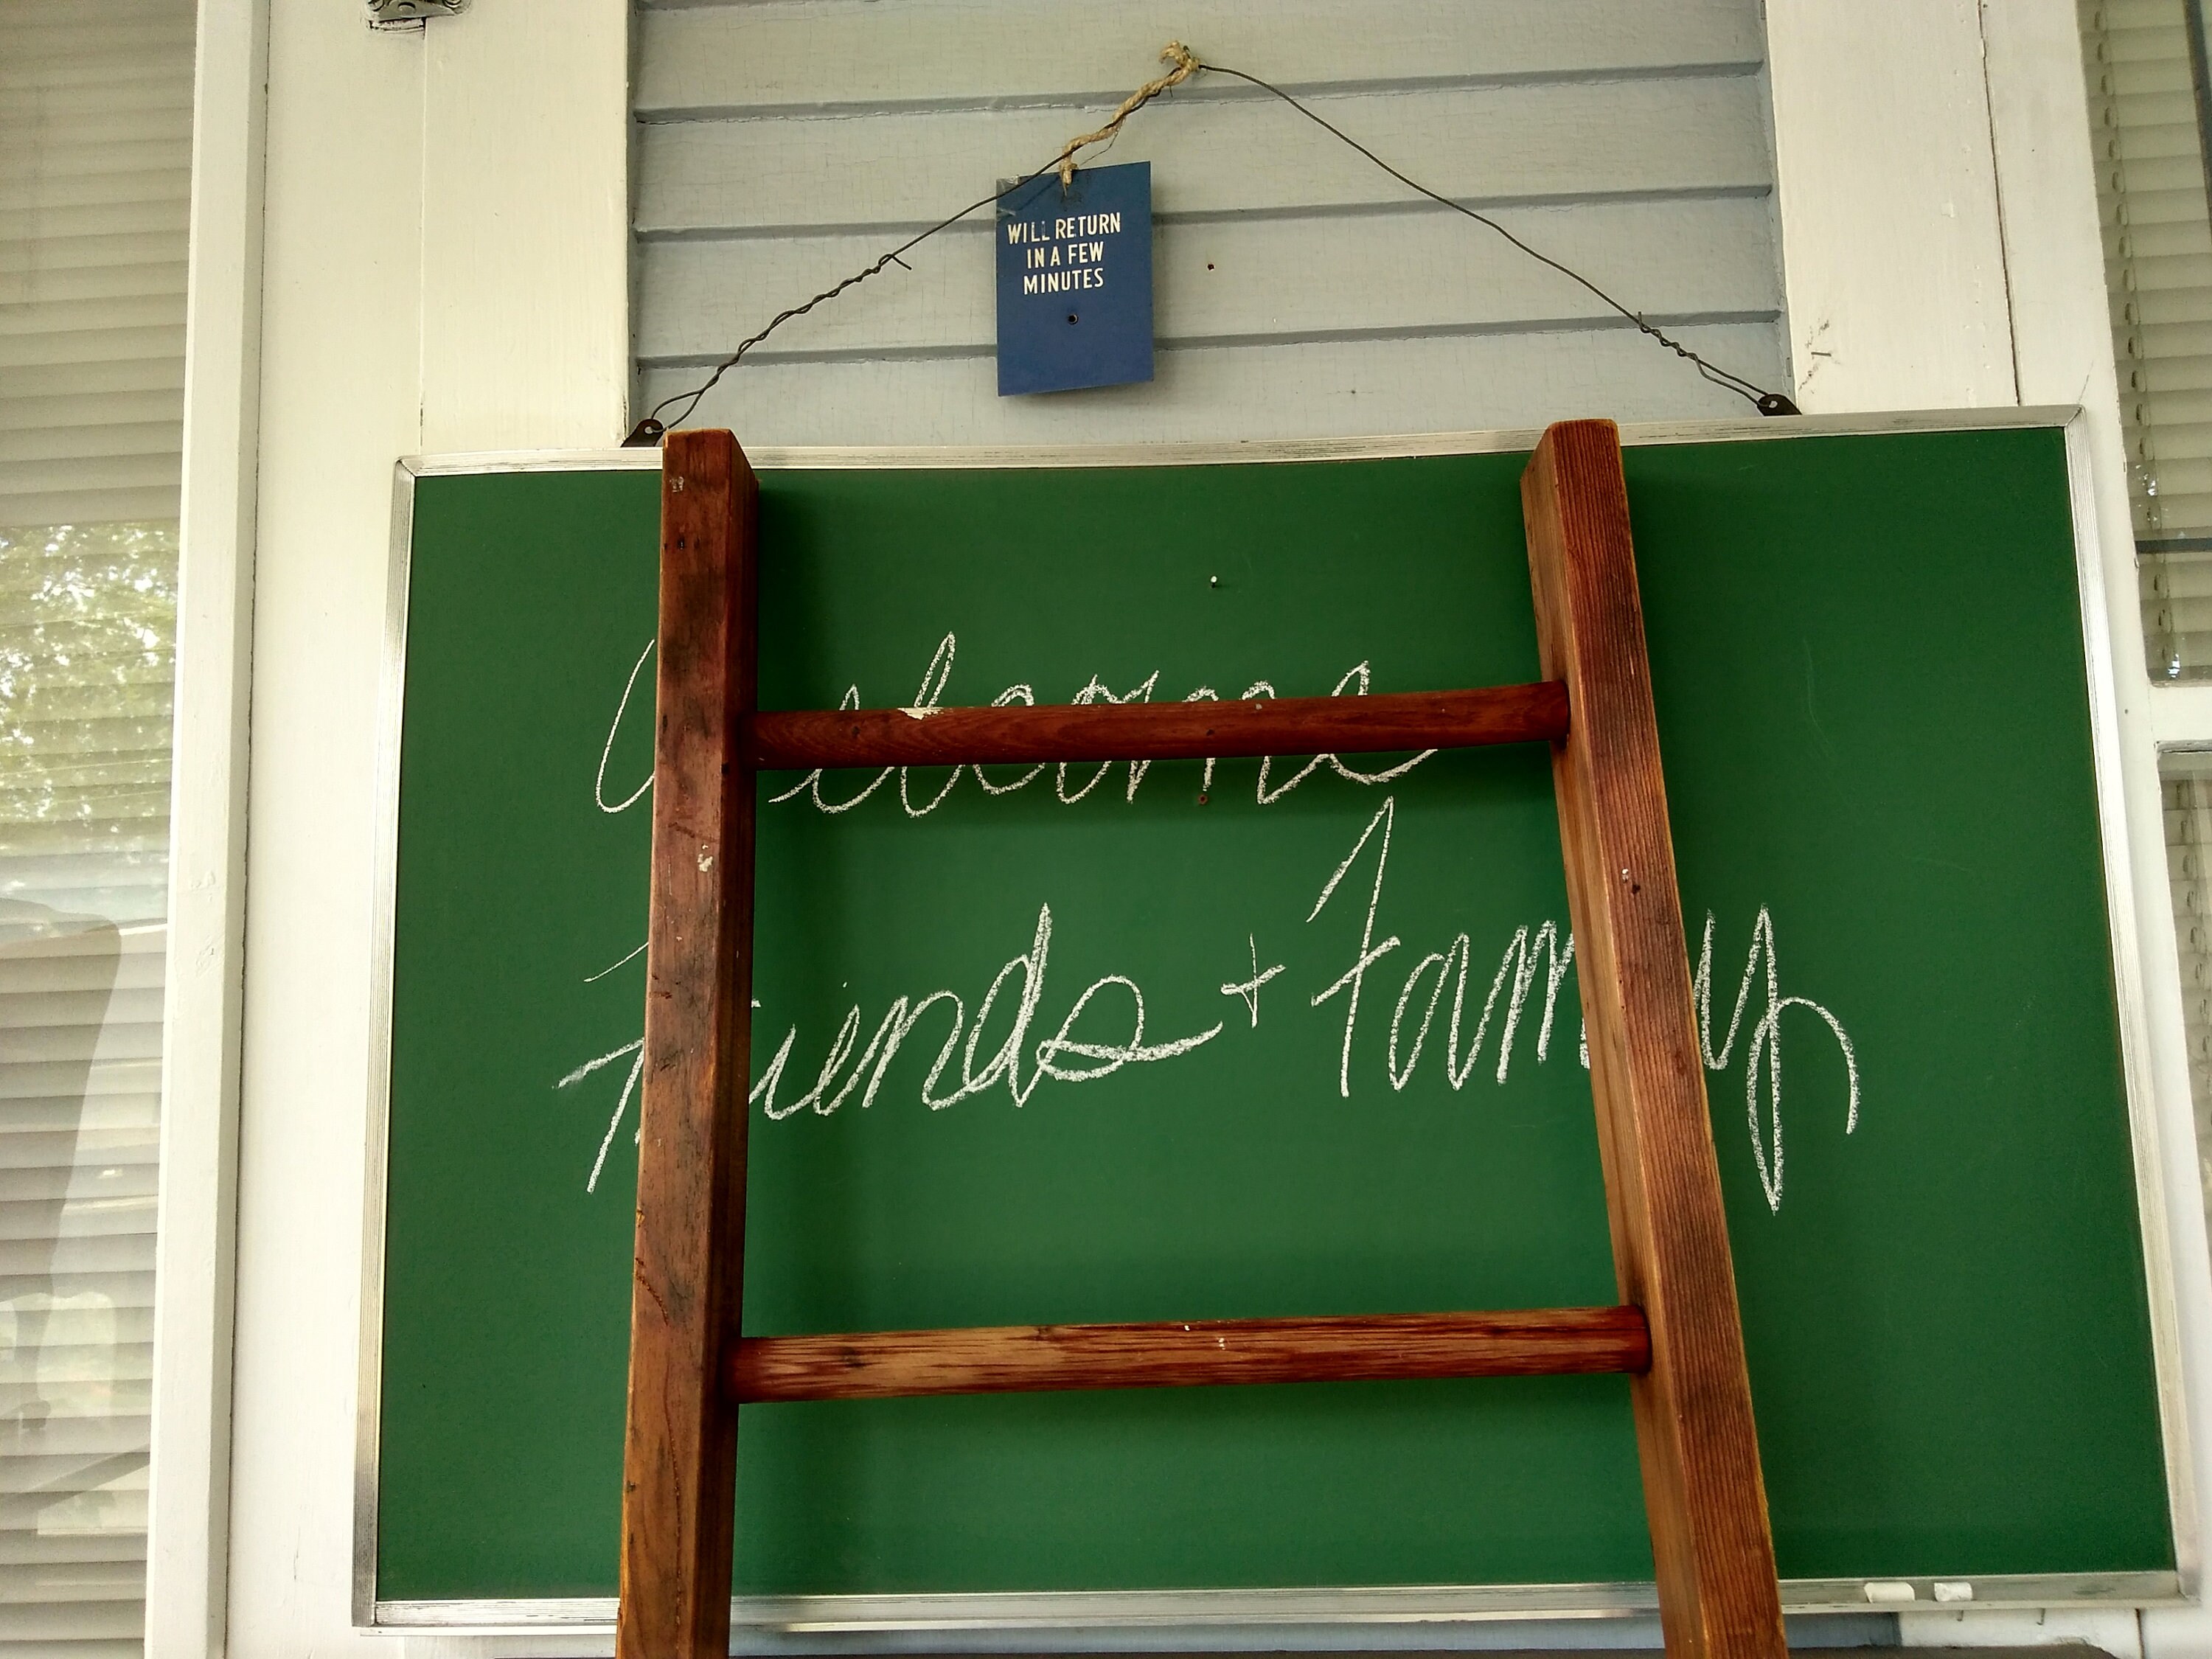 WILL RETURN
IN A FEW
MINUTES
Welcome
Friends + Family